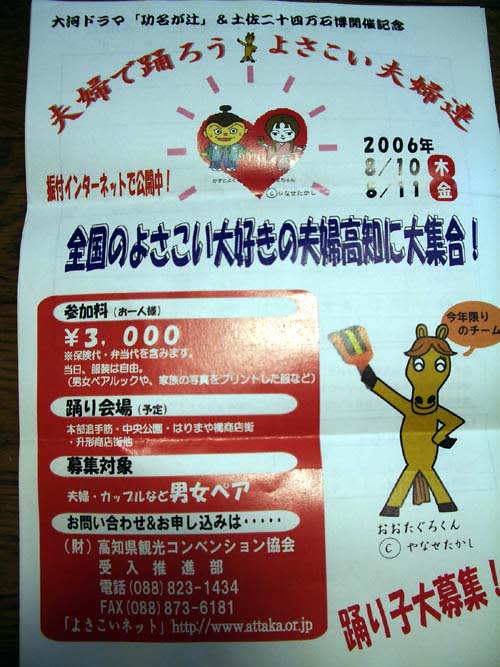 大河ドラマ「功名が辻」&土佐二十四万石博開催記念
夫婦で踊ろう よさこい夫婦連
2006年
8/10 木
8/11 金
かずとよくん
ちゃん
©やなせたかし
振付インターネットで公開中!
全国のよさこい大好きの夫婦高知に大集合!
参加料(お一人様)
¥3,000
※保険代・弁当代を含みます。
当日、服装は自由。
(男女ペアルックや、家族の写真をプリントした服など)
踊り会場(予定)
本部追手筋・中央公園・はりまや橋商店街
・升形商店街他
募集対象
夫婦・カップルなど男女ペア
お問い合わせ&お申し込みは・・・・・
(財)高知県観光コンベンション協会
受入推進部
電話(088)823-1434
FAX(088)873-6181
「よさこいネット」http://www.attaka.or.jp
今年限り
のチーム
おおたぐろくん
©やなせたかし
踊り子大募集!